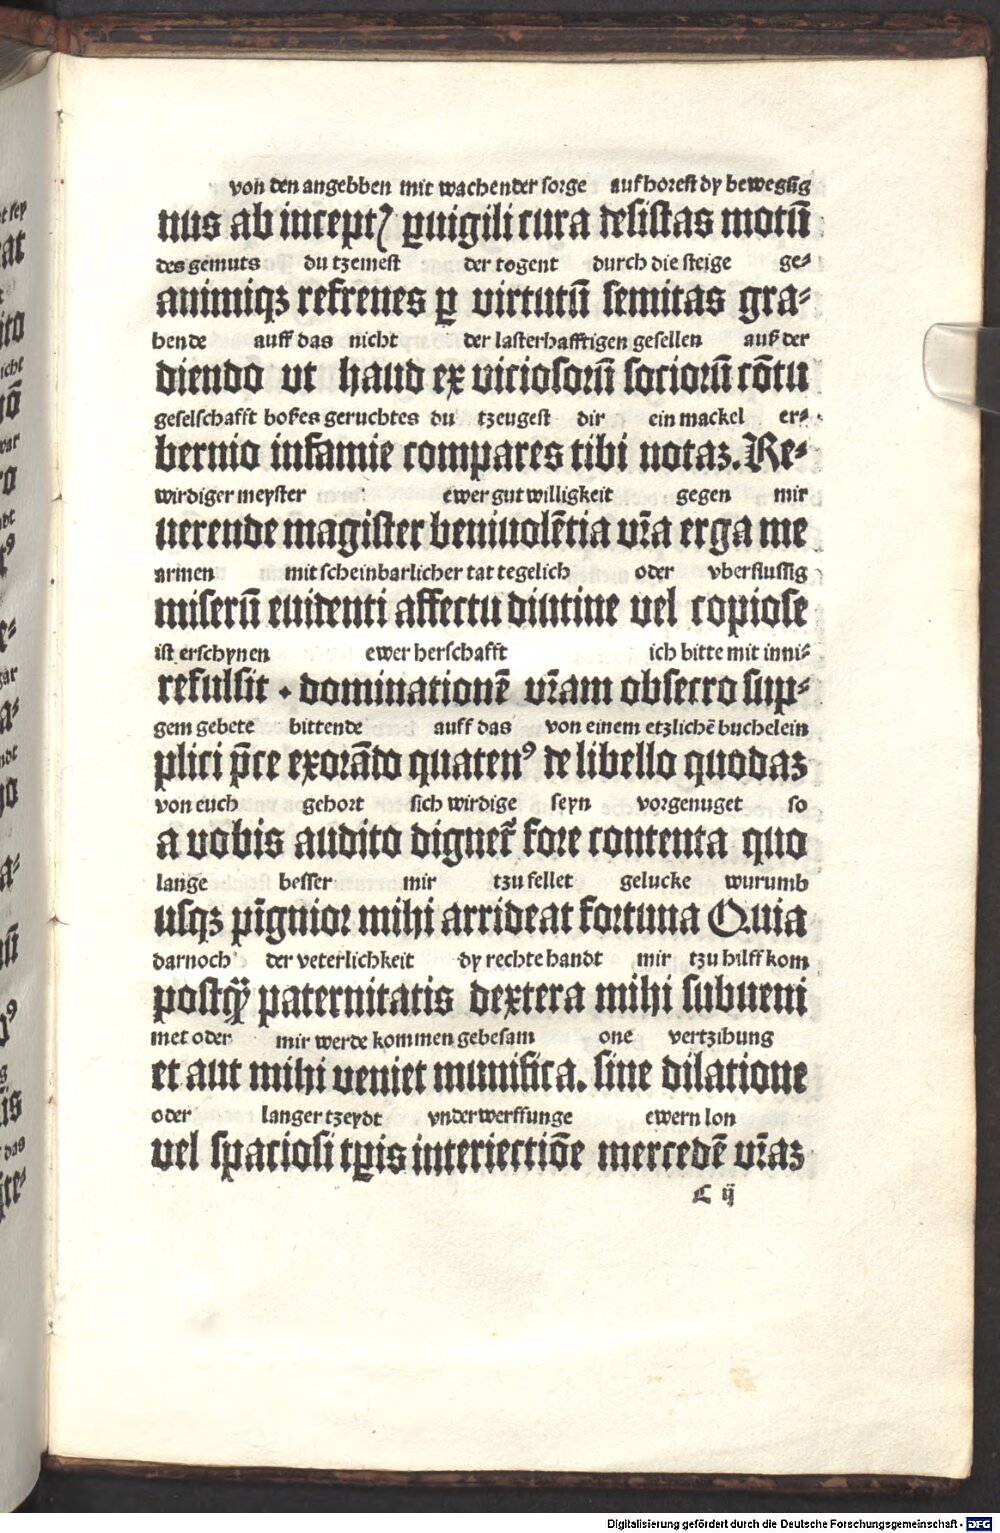 von den angebben mit wachender sorge auf horest dy bewegūg
nus ab incept⁊ ꝑuigili cura desistas motū
des gemuts du tzemest der togent durch die steige ge⸗
animiqꝫ refrenes ꝑ virtutū semitas gra⸗
hende auff das nicht der lasterhafftigen gesellen auß der
diendo ut haud ex viciosorū sociorū cōtu
geselschafft boßes geruchtes du tzeugest dir ein mackel er⸗
bernio infamie compares tibi notaꝫ. Re⸗
wirdiger meyster ewer gut willigkeit gegen mir
uerende magister beniuolētia vr̄a erga me
armen mit scheinbarlicher tat tegelich oder vberflussig
miserū euidenti affectu diutine vel copiose
ist erschynen ewer herschafft ich bitte mit inni⸗
refulsit . dominationē vr̄am obsecro sup⸗
gem gebete bittende auff das von einem etzlichē buchelein
plici p̄ce exorādo quatenꝰ de libello quodaꝫ
von euch gehort sich wirdige seyn vorgenuget so
a vobis audito dignet̄ fore contenta quo
lange besser mir tzu fellet gelucke wurumb
usqꝫ pīgnior mihi arrideat fortuna Quia
darnoch der veterlichkeit dy rechte handt mir tzu hilff kom
postq̄ꝫ paternitatis dextera mihi subueni
met oder mir werde kommen gebesam one vertzihung
et aut mihi veniet munifica. sine dilatione
oder langer tzeydt vnderwerffunge ewern lon
vel spaciosi tꝑis interiectiōe mercedē vr̄aꝫ
C ij
Digitalisierung gefördert durch die Deutsche Forschungsgemeinschaft - DFG